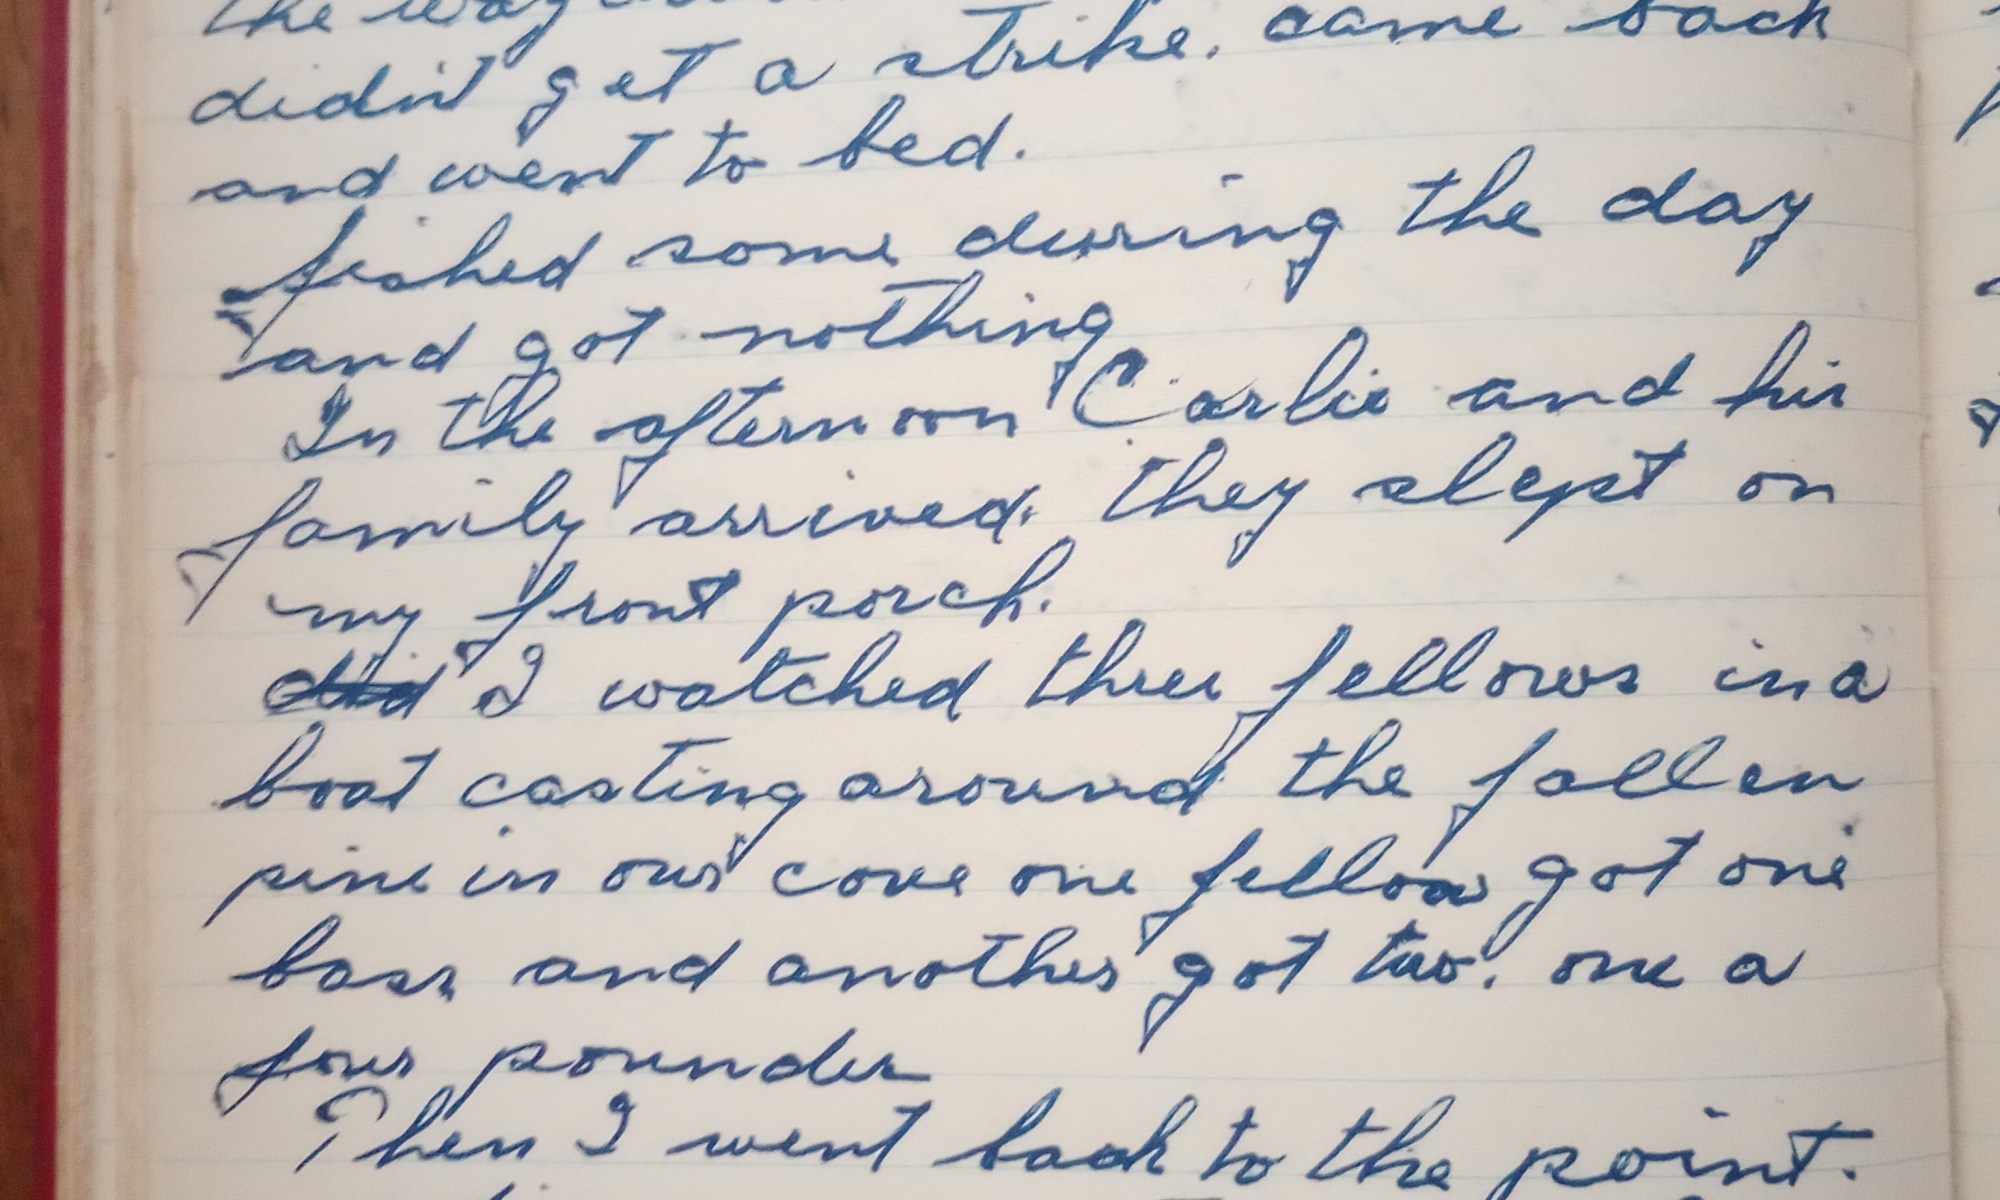 the way
didn't get a strike. came back
and went to bed.
fished some during the day
and got nothing
In the afternoon Carlie and his
family arrived. they slept on
my front porch.
did I watched three fellows in a
boat casting around the fallen
pine in our cove one fellow got one
bass and another got two. one a
four pounder
Then I went back to the point.